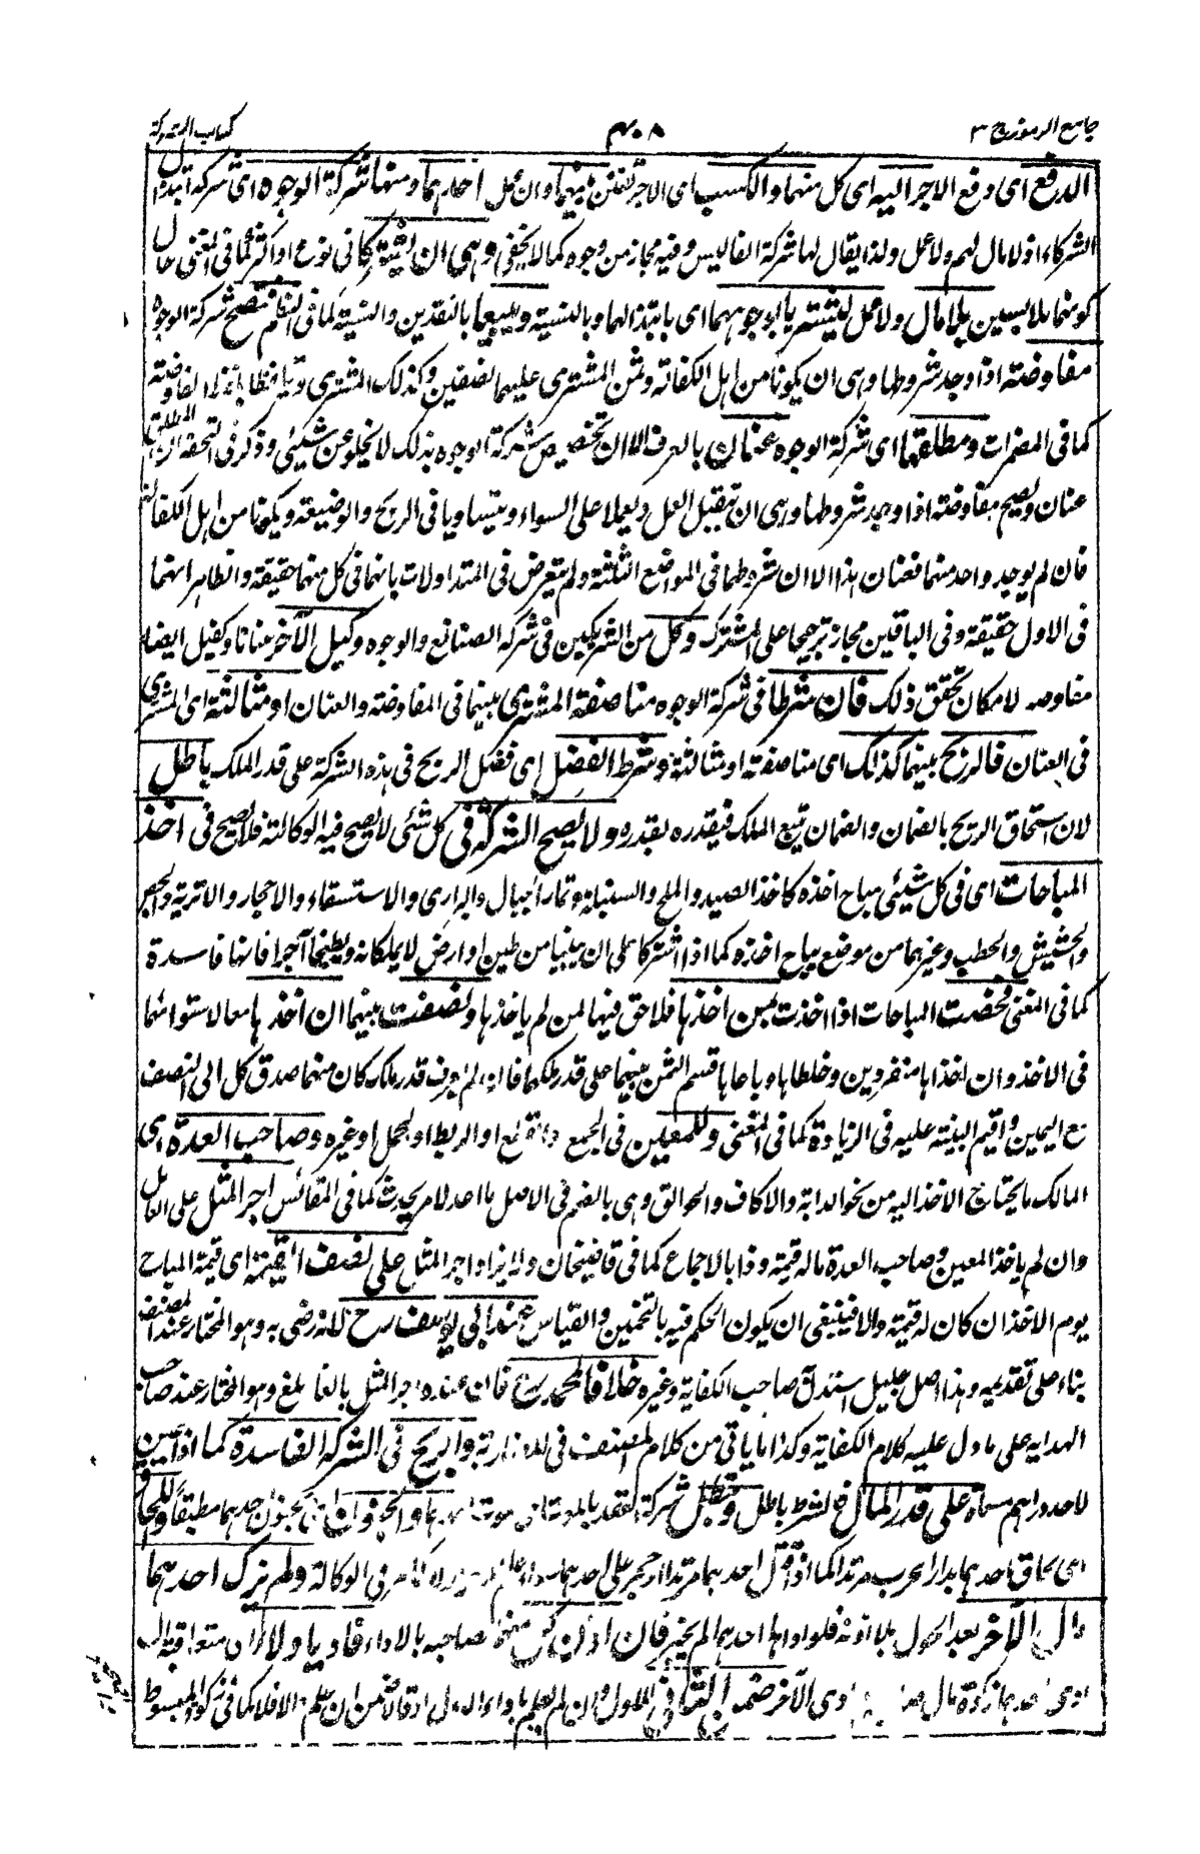 جامع الرموز ج ٣
٤٠٨
كتاب الشركة
الدفع اى دفع الاجر اليه اى كل منهما والكسب اى الاجر بينهما وان عمل احدهما ومنها شركة الوجوه اى شركة
الشركاء اذ لا مال لهم ولا عمل ولذا يقال لها شركة المفاليس وفيه مجاز من وجوه كما لا يخفى وهى ان يشتركا فى نوع او اكثر كما فى المغنى حال
كونهما ملابسين بلا مال ولا عمل ليشتريا بوجوههما اى بابتذالهما وبالنسية ويبيعا بالنقدين والنسية كما فى النظم فتصح شركة الوجوه
مفاوضته اذا وجد شروطها وهى ان يكونا من اهل الكفالة وثمن المشترى عليهما نصفين وكذلك المشترى
كما فى المضمرات ومطلقها اى شركة الوجوه عنان بالعرف الا ان تخصيص شركة الوجوه بذلك لا يخلو عن شيئ وذكر فى التحفة ان
عنان ويصح مفاوضته اذا وجد شروطها وهى ان تيقبل العمل ويعملا على السواء ويتساويا فى الربح والوضيعة ويكونا من اهل الكفالة
فان لم يوجد واحد منهما فعنان هذا الا ان شروطها فى المواضع الثلثة ولم يتعرض فى المتداولات بانهما فى كل منهما حقيقة والظاهر انهما
فى الاول حقيقة وفى الباقين مجاز ترجيحا على المشترك وكل من الشريكين فى شركة الصنائع والوجوه وكيل الآخر عنانا وكفيل ايضا
مفاوضه لامكان تحقق ذلك فان شرطا فى شركة الوجوه مناصفة المشترى بينهما فى المفاوضة والعنان او مثالثته اى المشترى
فى العنان فالربح بينهما كذلك اى مناصفته او مثالثة وشرط الفضل اى فضل الربح فى هذه الشركة على قدر الملك باطل
لان استحقاق الربح بالضمان والضمان تبع الملك فيقدره بقدره ولا يصح الشركة فى كل شئى لا يصح فيه الوكالة فلا يصح فى اخذ
المباحات اى فى كل شيئى مباح اخذه كاخذ الصيد والملح والسنبلة وثمار الجبال والبرارى والاستسقاء والاحجار والاتربة والجص
والحشيش والحطب وغيرهما من موضع يباح اخذه كما اذا اشتركا على ان يبنيا من طين او ارض لا يملكانه ويطبخا آجرا فانها فاسدة
كما فى المغنى فخصت المباحات اذا اخذت بمن اخذها فلا حق فيها لمن لم ياخذها ونصفت بينهما ان اخذ اها معا لاستوائهما
فى الاخذ وان اخذاها منفردين وخلطاها وباعاها قسم الثمن بينهما على قدر ملكهما فان لم يعرف قدر ملك كان منهما صدق كل الى النصف
مع اليمين واقيم البينة عليه فى الزيادة كما فى المغنى وللمعين فى الجمع والقلع او الربط او الحمل او غيره وصاحب العدة اى
المالك ما يحتاج الاخذ اليه من نحو الدابة والاكاف والجوالق وهى بالضم فى الاصل ما اعد لامر يحدث كما فى المقائس اجر المثل على
وان لم ياخذ المعين وصاحب العدة ماله قيمة وذا بالاجماع كما فى قاضيخان ولا يزاد اجر المثل على نصف القيمة اى قيمة المباح
يوم الاخذ ان كان له قيمة والا فينبغى ان يكون الحكم فيه بالتخمين والقياس عند ابى يوسف رح لانه رضى به وهو المختار عند المصنف
بناء على تقديمه وهذا اصل جليل استدل صاحب الكفاية وغيره خلافا لمحمد رح فان عنده اجر المثل بالغا ما بلغ وهو المختار عند صاحب
الهدايه على ما دل عليه كلام الكفاية وكذا ما ياتى من كلام المصنف فى المزارعة والربح فى الشركة الفاسدة كما اذا عين
لاحد دراهم مسماة على قدر المال فالشرط باطل وتبطل شركة العقد بالموت اى موت احدهما والجنون اى بجنون احدهما مطبقا واللحاق
اى لحاق احدهما بدار الحرب مرتدا كما اذا قتل احدهما مرتدا او حجر على احدهما سواء علم فى الوكالة ولم يزك احدهما
مال الآخر بعد الحول بلا اذنه فلو اداها احدهما لم يجز فان اذن كل منهما صاحبه بالاداء فاديا ولاء اى متعاقبة
ادى احدهما زكوة مال ادى الآخر ضمن الثانى للاول وان لم يعلم باداء الاول وقالا ضمن ان علم والا فلا كما فى زكوة المبسوط